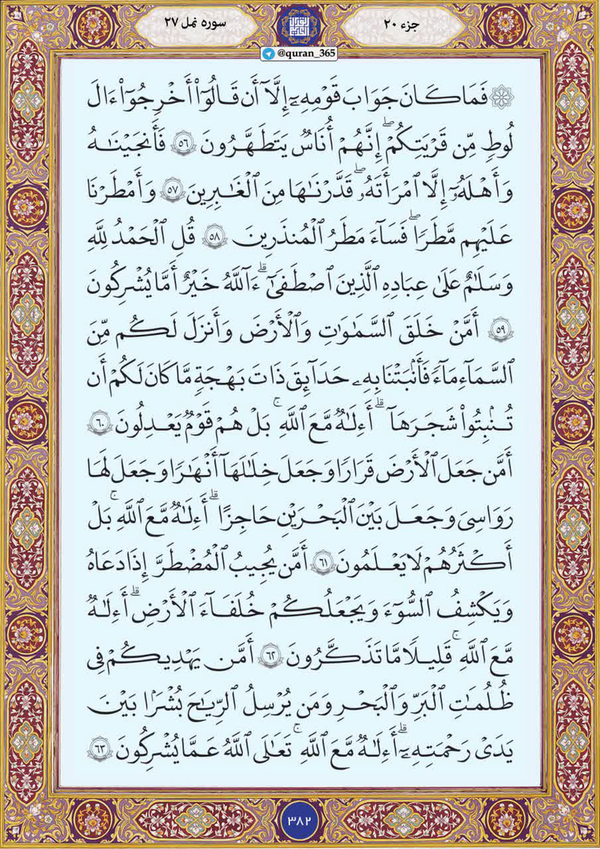 جزء ۲۰
سوره نمل ۲۷
@quran_365
۞ فَمَا كَانَ جَوَابَ قَوْمِهِۦٓ إِلَّآ أَن قَالُوٓا۟ أَخْرِجُوٓا۟ ءَالَ
لُوطٍ مِّن قَرْيَتِكُمْ ۖ إِنَّهُمْ أُنَاسٌ يَتَطَهَّرُونَ ٥٦ فَأَنجَيْنَـٰهُ
وَأَهْلَهُۥٓ إِلَّا ٱمْرَأَتَهُۥ ۖ قَدَّرْنَـٰهَا مِنَ ٱلْغَـٰبِرِينَ ٥٧ وَأَمْطَرْنَا
عَلَيْهِم مَّطَرًا ۖ فَسَآءَ مَطَرُ ٱلْمُنذَرِينَ ٥٨ قُلِ ٱلْحَمْدُ لِلَّهِ
وَسَلَـٰمٌ عَلَىٰ عِبَادِهِ ٱلَّذِينَ ٱصْطَفَىٰٓ ۗ ءَآللَّهُ خَيْرٌ أَمَّا يُشْرِكُونَ
٥٩ أَمَّنْ خَلَقَ ٱلسَّمَـٰوَٰتِ وَٱلْأَرْضَ وَأَنزَلَ لَكُم مِّنَ
ٱلسَّمَآءِ مَآءً فَأَنۢبَتْنَا بِهِۦ حَدَآئِقَ ذَاتَ بَهْجَةٍ مَّا كَانَ لَكُمْ أَن
تُنۢبِتُوا۟ شَجَرَهَآ ۗ أَءِلَـٰهٌ مَّعَ ٱللَّهِ ۚ بَلْ هُمْ قَوْمٌ يَعْدِلُونَ ٦٠
أَمَّن جَعَلَ ٱلْأَرْضَ قَرَارًا وَجَعَلَ خِلَـٰلَهَآ أَنْهَـٰرًا وَجَعَلَ لَهَا
رَوَٰسِىَ وَجَعَلَ بَيْنَ ٱلْبَحْرَيْنِ حَاجِزًا ۗ أَءِلَـٰهٌ مَّعَ ٱللَّهِ ۚ بَلْ
أَكْثَرُهُمْ لَا يَعْلَمُونَ ٦١ أَمَّن يُجِيبُ ٱلْمُضْطَرَّ إِذَا دَعَاهُ
وَيَكْشِفُ ٱلسُّوٓءَ وَيَجْعَلُكُمْ خُلَفَآءَ ٱلْأَرْضِ ۗ أَءِلَـٰهٌ
مَّعَ ٱللَّهِ ۚ قَلِيلًا مَّا تَذَكَّرُونَ ٦٢ أَمَّن يَهْدِيكُمْ فِى
ظُلُمَـٰتِ ٱلْبَرِّ وَٱلْبَحْرِ وَمَن يُرْسِلُ ٱلرِّيَـٰحَ بُشْرًۢا بَيْنَ
يَدَىْ رَحْمَتِهِۦٓ ۗ أَءِلَـٰهٌ مَّعَ ٱللَّهِ ۚ تَعَـٰلَى ٱللَّهُ عَمَّا يُشْرِكُونَ ٦٣
٣٨٢